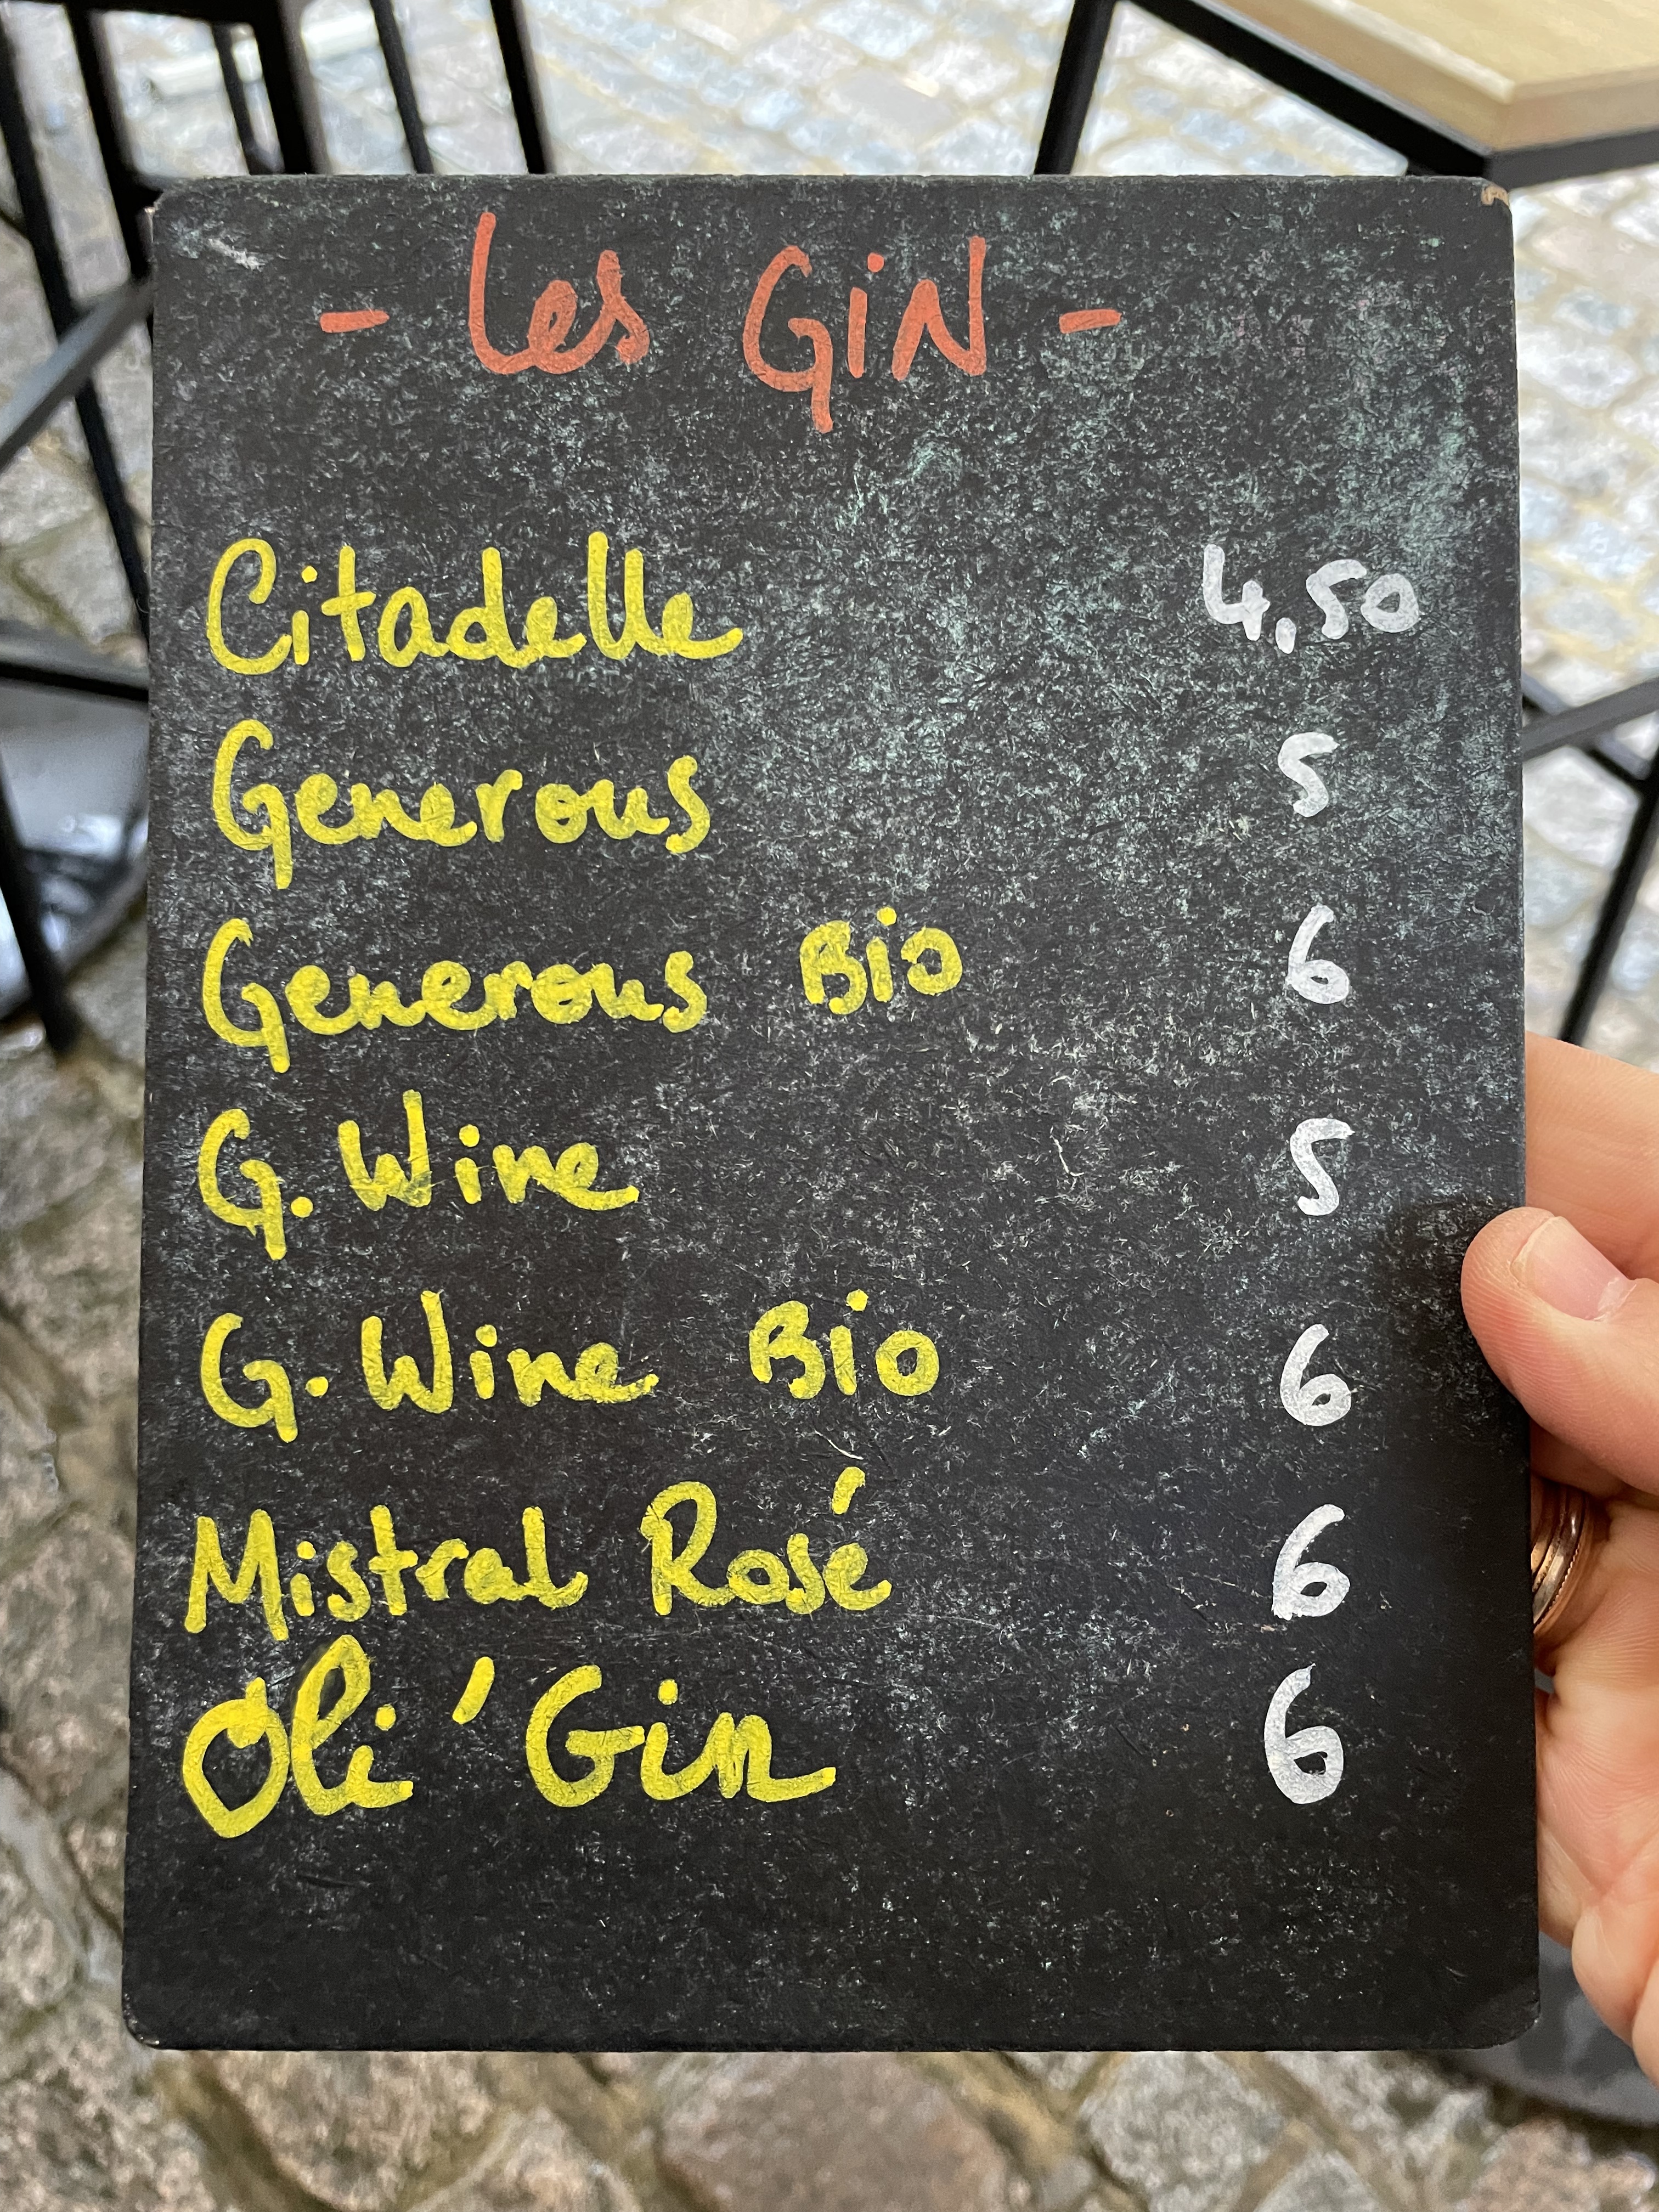 - Les GiN -
Citadelle 4,50
Generous 5
Generous Bio 6
G. Wine 5
G. Wine Bio 6
Mistral Rosé 6
Oli'Gin 6